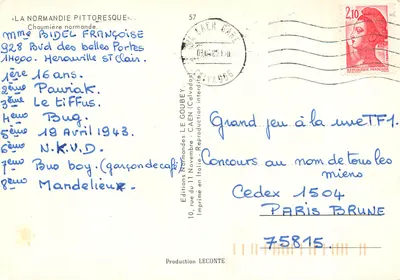 «LA NORMANDIE PITTORESQUE»
Chaumière normande.
57
Mme BIDEL FRANÇOISE
928 Bvd des belles Portes
14200. Herouville St Clair.
1ère 16 ans.
2ème Pauriak.
3ème Le tiffus.
4ème Bug.
5ème 19 Avril 1943.
6ème N.K.V.D.
7ème Bus boy. (garçon de café)
8ème Mandelieux.
Editions Normandes LE GOUBEY
10, rue du 11 Novembre - CAEN (Calvados)
Imprimé en Italie - Reproduction interdite
2,10
RÉPUBLIQUE FRANÇAISE
Grand jeu à la une TF1.
Concours au nom de tous les
miens
Cedex 1504
PARIS BRUNE
75815.
Production LECONTE.